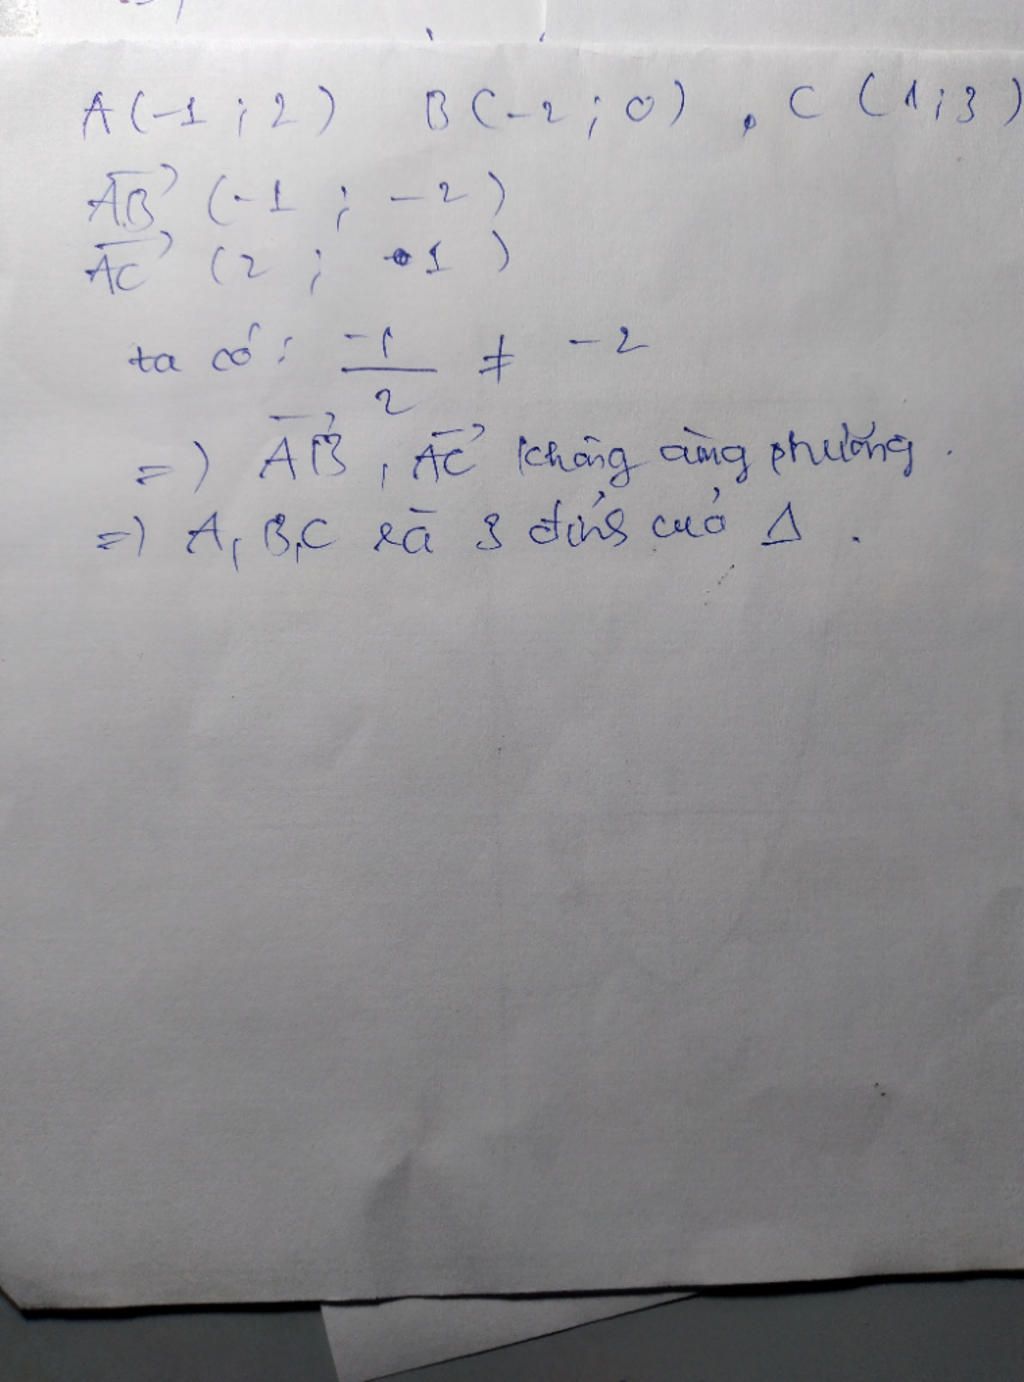 A(-1 ; 2) B(-2 ; 0) , C (1 ; 3)
AB→ (-1 ; -2)
AC→ (2 ; 1)
ta có : -1/2 ≠ -2
=) AB→ , AC→ không cùng phương .
=) A, B, C là 3 đỉnh của Δ .